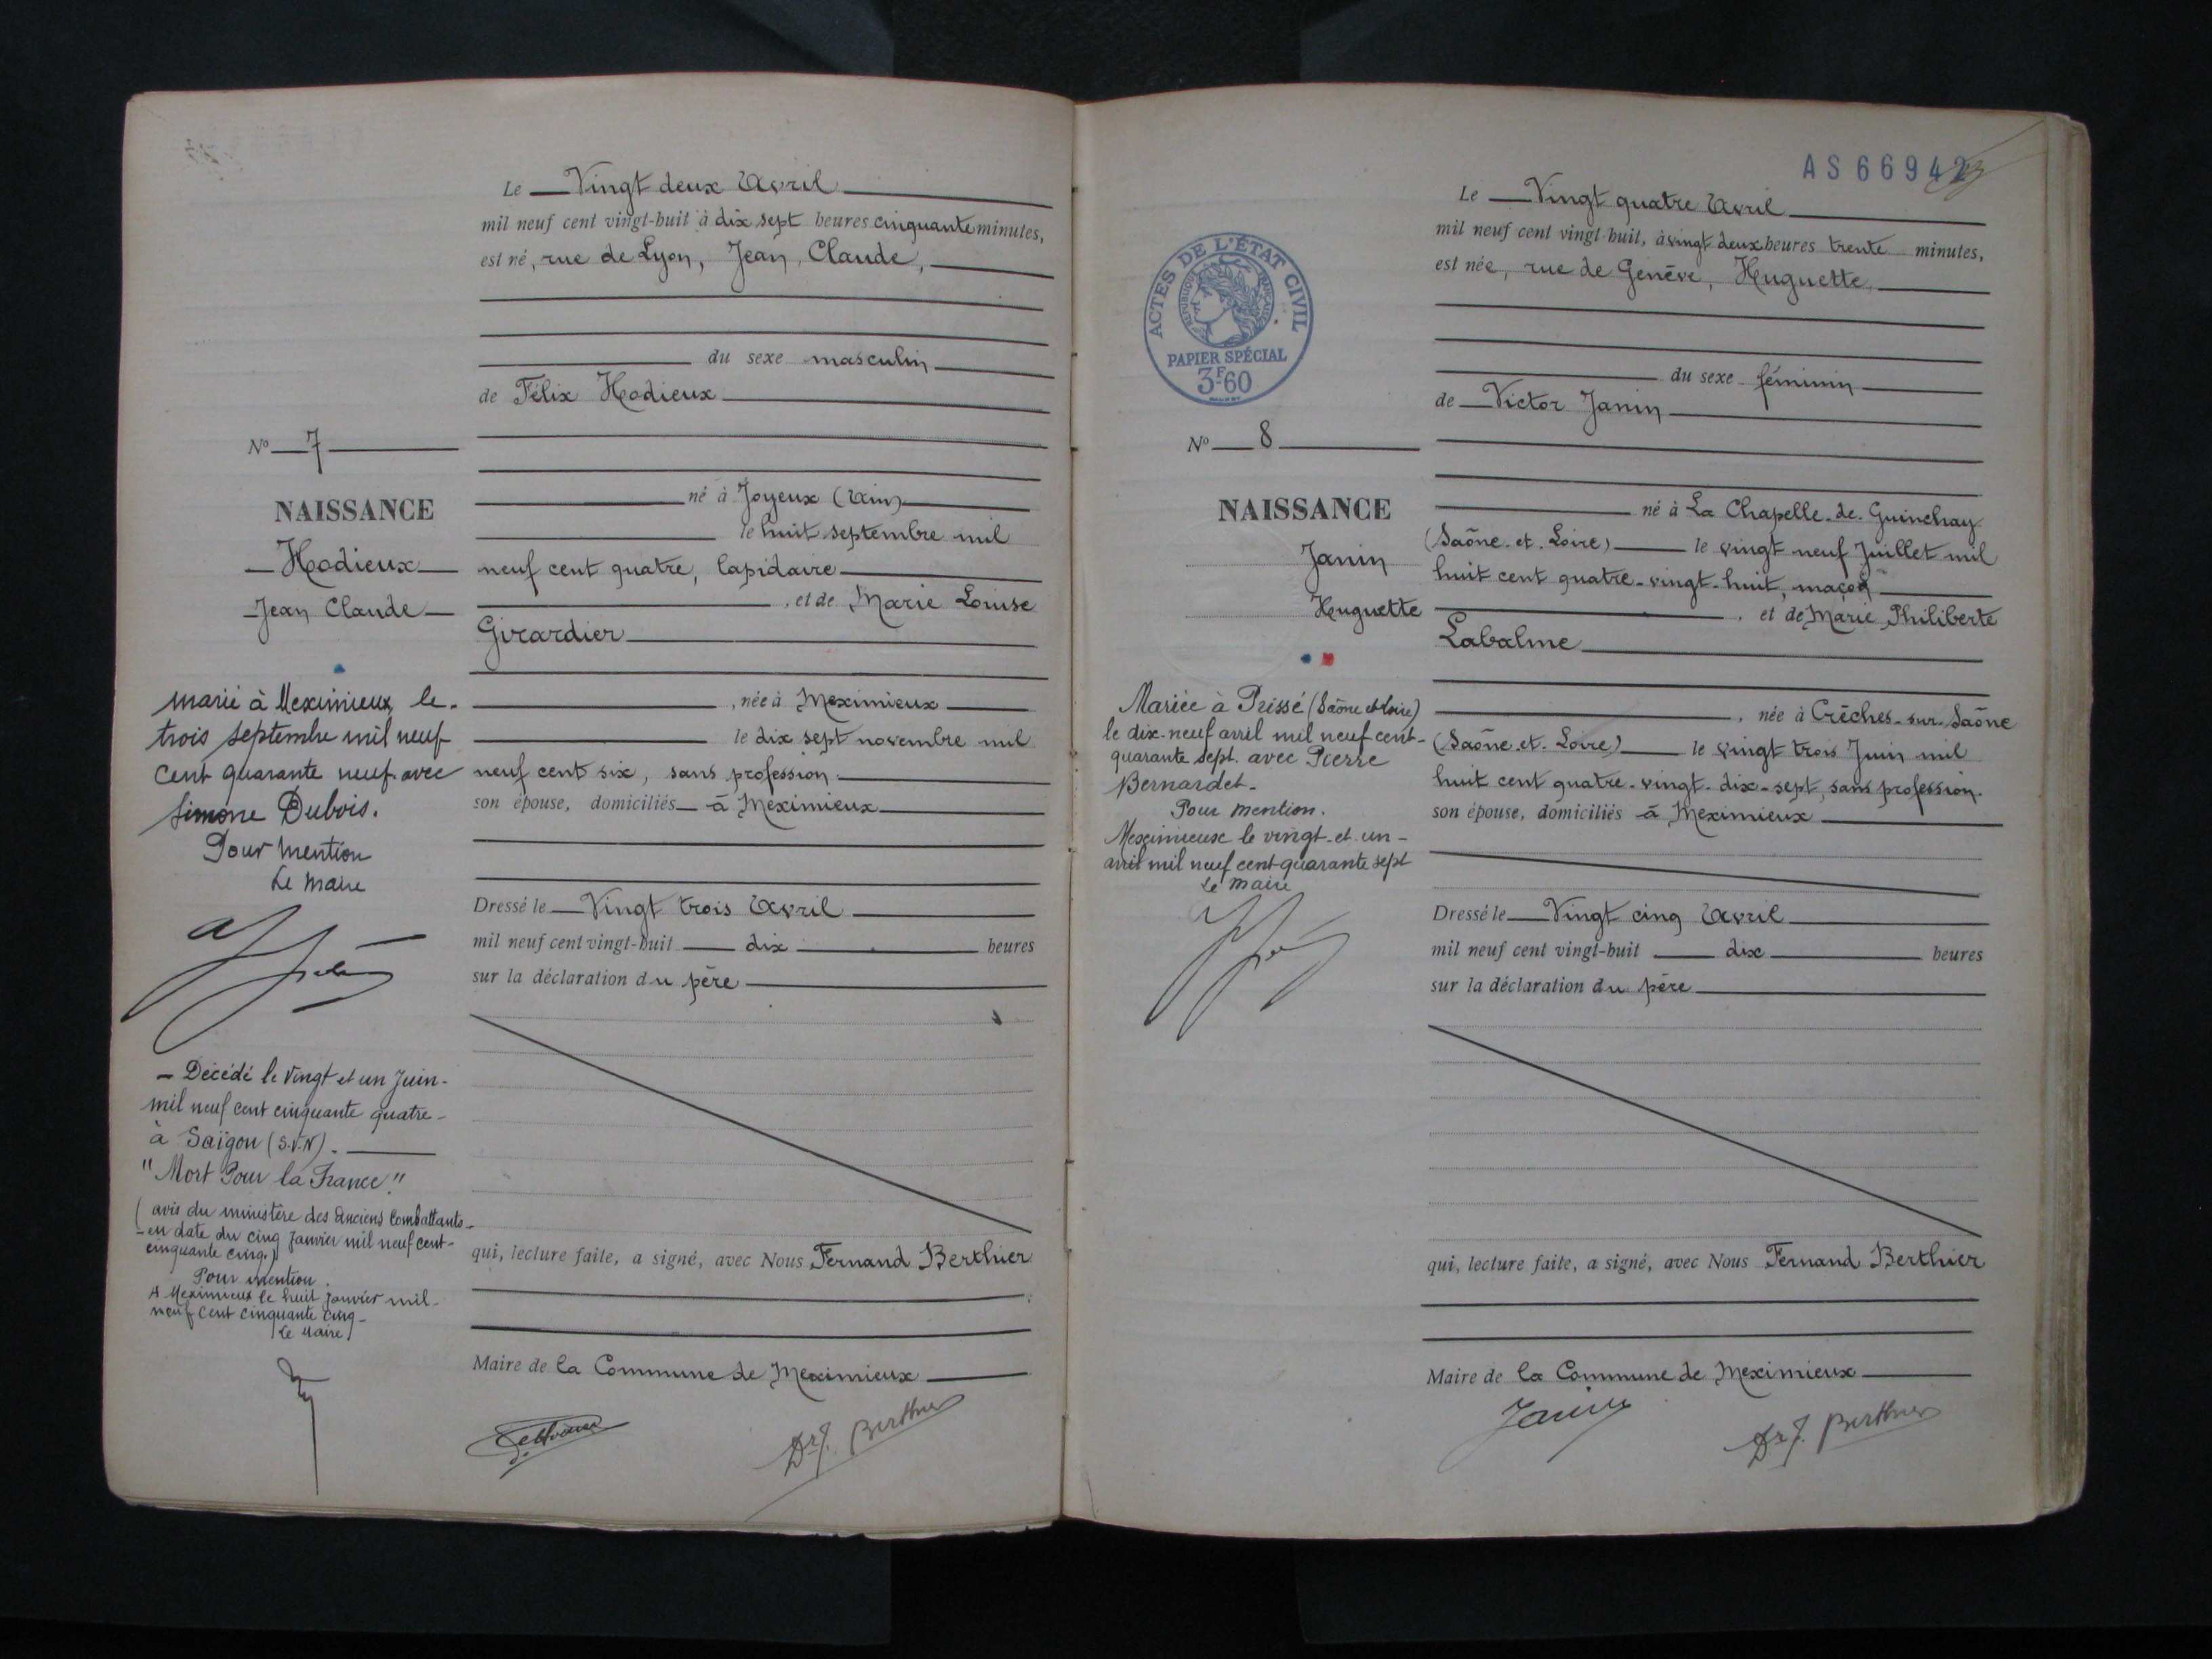 Le Vingt deux Avril
mil neuf cent vingt-huit à dix sept heures cinquante minutes,
est né, rue de Lyon, Jean, Claude,
du sexe masculin
de Félix Hodieux
N° 7
né à Joyeux (Ain)
NAISSANCE
le huit septembre mil
Hodieux
neuf cent quatre, lapidaire
Jean Claude
, et de Marie Louise
Girardier
marié à Meximieux le
trois septembre mil neuf
cent quarante neuf avec
Simone Dubois.
Pour mention
Le Maire
, née à Meximieux
le dix sept novembre mil
neuf cent six, sans profession
son épouse, domiciliés à Meximieux
Dressé le Vingt trois Avril
mil neuf cent vingt-huit dix heures
sur la déclaration du père
- Décédé le vingt et un Juin-
mil neuf cent cinquante quatre-
à Saïgon (S.V.N).
"Mort Pour la France"
(avis du ministère des Anciens Combattants-
-en date du cinq Janvier mil neuf cent-
cinquante cinq.)
Pour mention.
A Meximieux le huit janvier mil-
neuf cent cinquante cinq-
Le Maire
qui, lecture faite, a signé, avec Nous Fernand Berthier
Maire de la Commune de Meximieux
Dr F. Berthier
AS 66942
Le Vingt quatre Avril
mil neuf cent vingt-huit, à vingt deux heures trente minutes,
est née, rue de Genève, Huguette
ACTES DE L'ÉTAT CIVIL
RÉPUBLIQUE FRANÇAISE
PAPIER SPÉCIAL
3F60
du sexe féminin
de Victor Janin
N° 8
né à La Chapelle-de-Guinchay
NAISSANCE
(Saône-et-Loire) le vingt neuf Juillet mil
Janin
huit cent quatre-vingt-huit, maçon
Huguette
, et de Marie Philiberte
Labalme
Mariée à Prissé (Saône et Loire)
le dix-neuf avril mil neuf cent-
quarante sept. avec Pierre
Bernardet-
Pour mention.
Meximieux le vingt-et-un-
avril mil neuf cent quarante sept
Le maire
, née à Crèches-sur-Saône
(Saône-et-Loire) le vingt trois Juin mil
huit cent quatre-vingt-dix-sept, sans profession.
son épouse, domiciliés à Meximieux
Dressé le Vingt cinq Avril
mil neuf cent vingt-huit dix heures
sur la déclaration du père
qui, lecture faite, a signé, avec Nous Fernand Berthier
Maire de la Commune de Meximieux
Janin
Dr F. Berthier